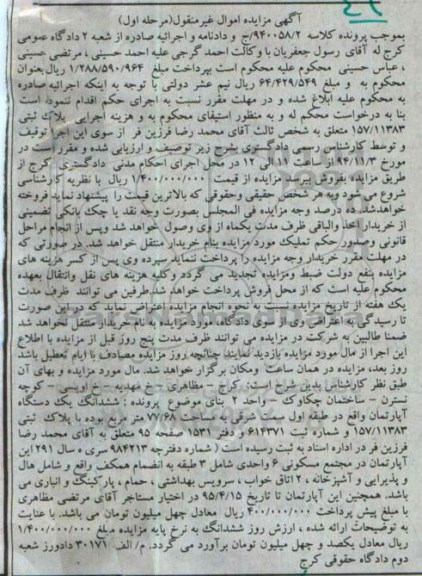 آگهی مزایده اموال غیرمنقول(مرحله اول)
بموجب پرونده کلاسه ۹۴۰۰۵۸/۲/ج و دادنامه و اجرائیه صادره از شعبه ۲ دادگاه عمومی
کرج له آقای رسول جعفریان با وکالت احمد گرجی علیه احمد حسینی ، مرتضی حسینی
، عباس حسینی محکوم علیه محکوم است بپرداخت مبلغ ۱/۲۸۸/۵۹۰/۹۶۴ ریال بعنوان
محکوم به و مبلغ ۶۴/۴۲۹/۵۴۹ ریال نیم عشر دولتی با توجه به اینکه اجرائیه صادره
به محکوم علیه ابلاغ شده و در مهلت مقرر نسبت به اجرای حکم اقدام ننموده است
بنا به درخواست محکوم له و به منظور استیفای محکوم به و هزینه اجرایی پلاک ثبتی
۱۵۷/۱۱۳۸۳ متعلق به شخص ثالث آقای محمد رضا فرزین فر از سوی این اجرا توقیف
و توسط کارشناس رسمی دادگستری بشرح زیر توصیف و ارزیابی شده و مقرر است در
مورخ ۹۴/۱۱/۳ از ساعت ۱۱ الی ۱۲ در محل اجرای احکام مدنی دادگستری کرج از
طریق مزایده بفروش برسد. مزایده از قیمت ۱/۴۰۰/۰۰۰/۰۰۰ ریال با نظریه کارشناسی
شروع می شود وبه هر شخص حقیقی وحقوقی که بالاترین قیمت را پیشنهاد نماید فروخته
خواهدشد. ده درصد وجه مزایده فی المجلس بصورت وجه نقد یا چک بانکی تضمینی
از خریدار اخذ والباقی ظرف مدت یکماه از وی وصول خواهد شد وپس از انجام مراحل
قانونی وصدور حکم تملیک مورد مزایده بنام خریدار منتقل خواهد شد. در صورتی که
در مهلت مقرر خریدار وجه مزایده را پرداخت ننماید سپرده وی پس از کسر هزینه های
مزایده بنفع دولت ضبط ومزایده تجدید می گردد وکلیه هزینه های نقل وانتقال بعهده
محکوم علیه است که از محل فروش پرداخت خواهد شد.طرفین می توانند ظرف مدت
یک هفته از تاریخ مزایده نسبت به نحوه انجام مزایده اعتراض نماید که در این صورت
تا رسیدگی به اعتراض وی از سوی دادگاه، مورد مزایده به نام خریدار منتقل نخواهد شد
ضمنا طالبین به شرکت در مزایده می توانند ظرف مدت پنج روز قبل از مزایده با اطلاع
این اجرا از مال مورد مزایده بازدید نمایند چنانچه روز مزایده مصادف با ایام تعطیل باشد
روز بعد، مزایده در همان ساعت ومکان برگزار خواهد شد. مال مورد مزایده و بهای آن
طبق نظر کارشناس بدین شرح است: کرج – مظاهری – خ مهدیه – خ اویسی – کوچه
نسترن – ساختمان چکاوک – واحد ۲ بنای موضوع پرونده : ششدانگ یک دستگاه
آپارتمان واقع در طبقه اول سمت شرقی به مساحت ۷۷/۶۸ متر مربع بوده با پلاک ثبتی
۱۵۷/۱۱۳۸۳ و شماره ثبت ۶۱۴۳۷۱ و دفتر ۱۵۳۱ صفحه ۹۵ متعلق به آقای محمد رضا
فرزین فر در اداره اسناد به ثبت رسیده است ( شماره دفترچه ۹۸۴۲۱۳ سری ه سال ۲۹۱ این
آپارتمان در مجتمع مسکونی ۶ واحدی شامل ۳ طبقه به انضمام همکف واقع و شامل هال
و پذیرایی و آشپزخانه ، ۲ اتاق خواب ، سرویس بهداشتی ، حمام ، پارکینگ و انباری می
باشد. همچنین این آپارتمان تا تاریخ ۹۵/۴/۱۵ در اختیار مستاجر آقای مرتضی مظاهری
با مبلغ پیش پرداخت ۴۰۰/۰۰۰/۰۰۰ ریال معادل چهل میلیون تومان می باشد. با عنایت
به توضیحات ارائه شده ، ارزش روز ششدانگ به نرخ پایه مزایده مبلغ ۱/۴۰۰/۰۰۰/۰۰۰
ریال معادل یکصد و چهل میلیون تومان برآورد می گردد. م/ الف ۳۰۱۷۱ دادورز شعبه
دوم دادگاه حقوقی کرج